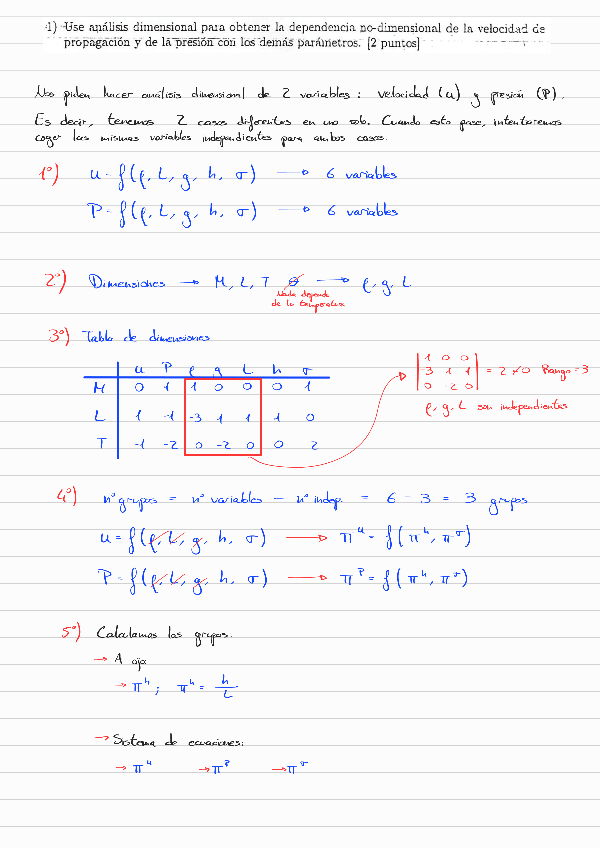 1) Use análisis dimensional para obtener la dependencia no-dimensional de la velocidad de
propagación y de la presión con los demás parámetros. [2 puntos]
Nos piden hacer análisis dimensional de 2 variables: velocidad (u) y presión (P).
Es decir, tenemos 2 casos diferentes en uno solo. Cuando esto pase, intentaremos
coger las mismas variables independientes para ambos casos.
1º) u = f(ρ, L, g, h, σ) → 6 variables
P = f(ρ, L, g, h, σ) → 6 variables
2º) Dimensiones → M, L, T θ → ρ, g, L
Nada depende
de la temperatura
3º) Tabla de dimensiones
u P ρ g L h σ
M 0 1 1 0 0 0 1
L 1 -1 -3 1 1 1 0
T -1 -2 0 -2 0 0 2
|1 0 0|
|-3 1 1| = 2 ≠ 0 Rango = 3
|0 -2 0|
ρ, g, L son independientes
4º) nº grupos = nº variables - nº indep. = 6 - 3 = 3 grupos
u = f(ρ, L, g, h, σ) → π^u = f(π^h, π^σ)
P = f(ρ, L, g, h, σ) → π^P = f(π^h, π^σ)
5º) Calculamos los grupos.
→ A ojo
→ π^h; π^h = h/L
→ Sistema de ecuaciones:
→ π^u → π^P → π^σ